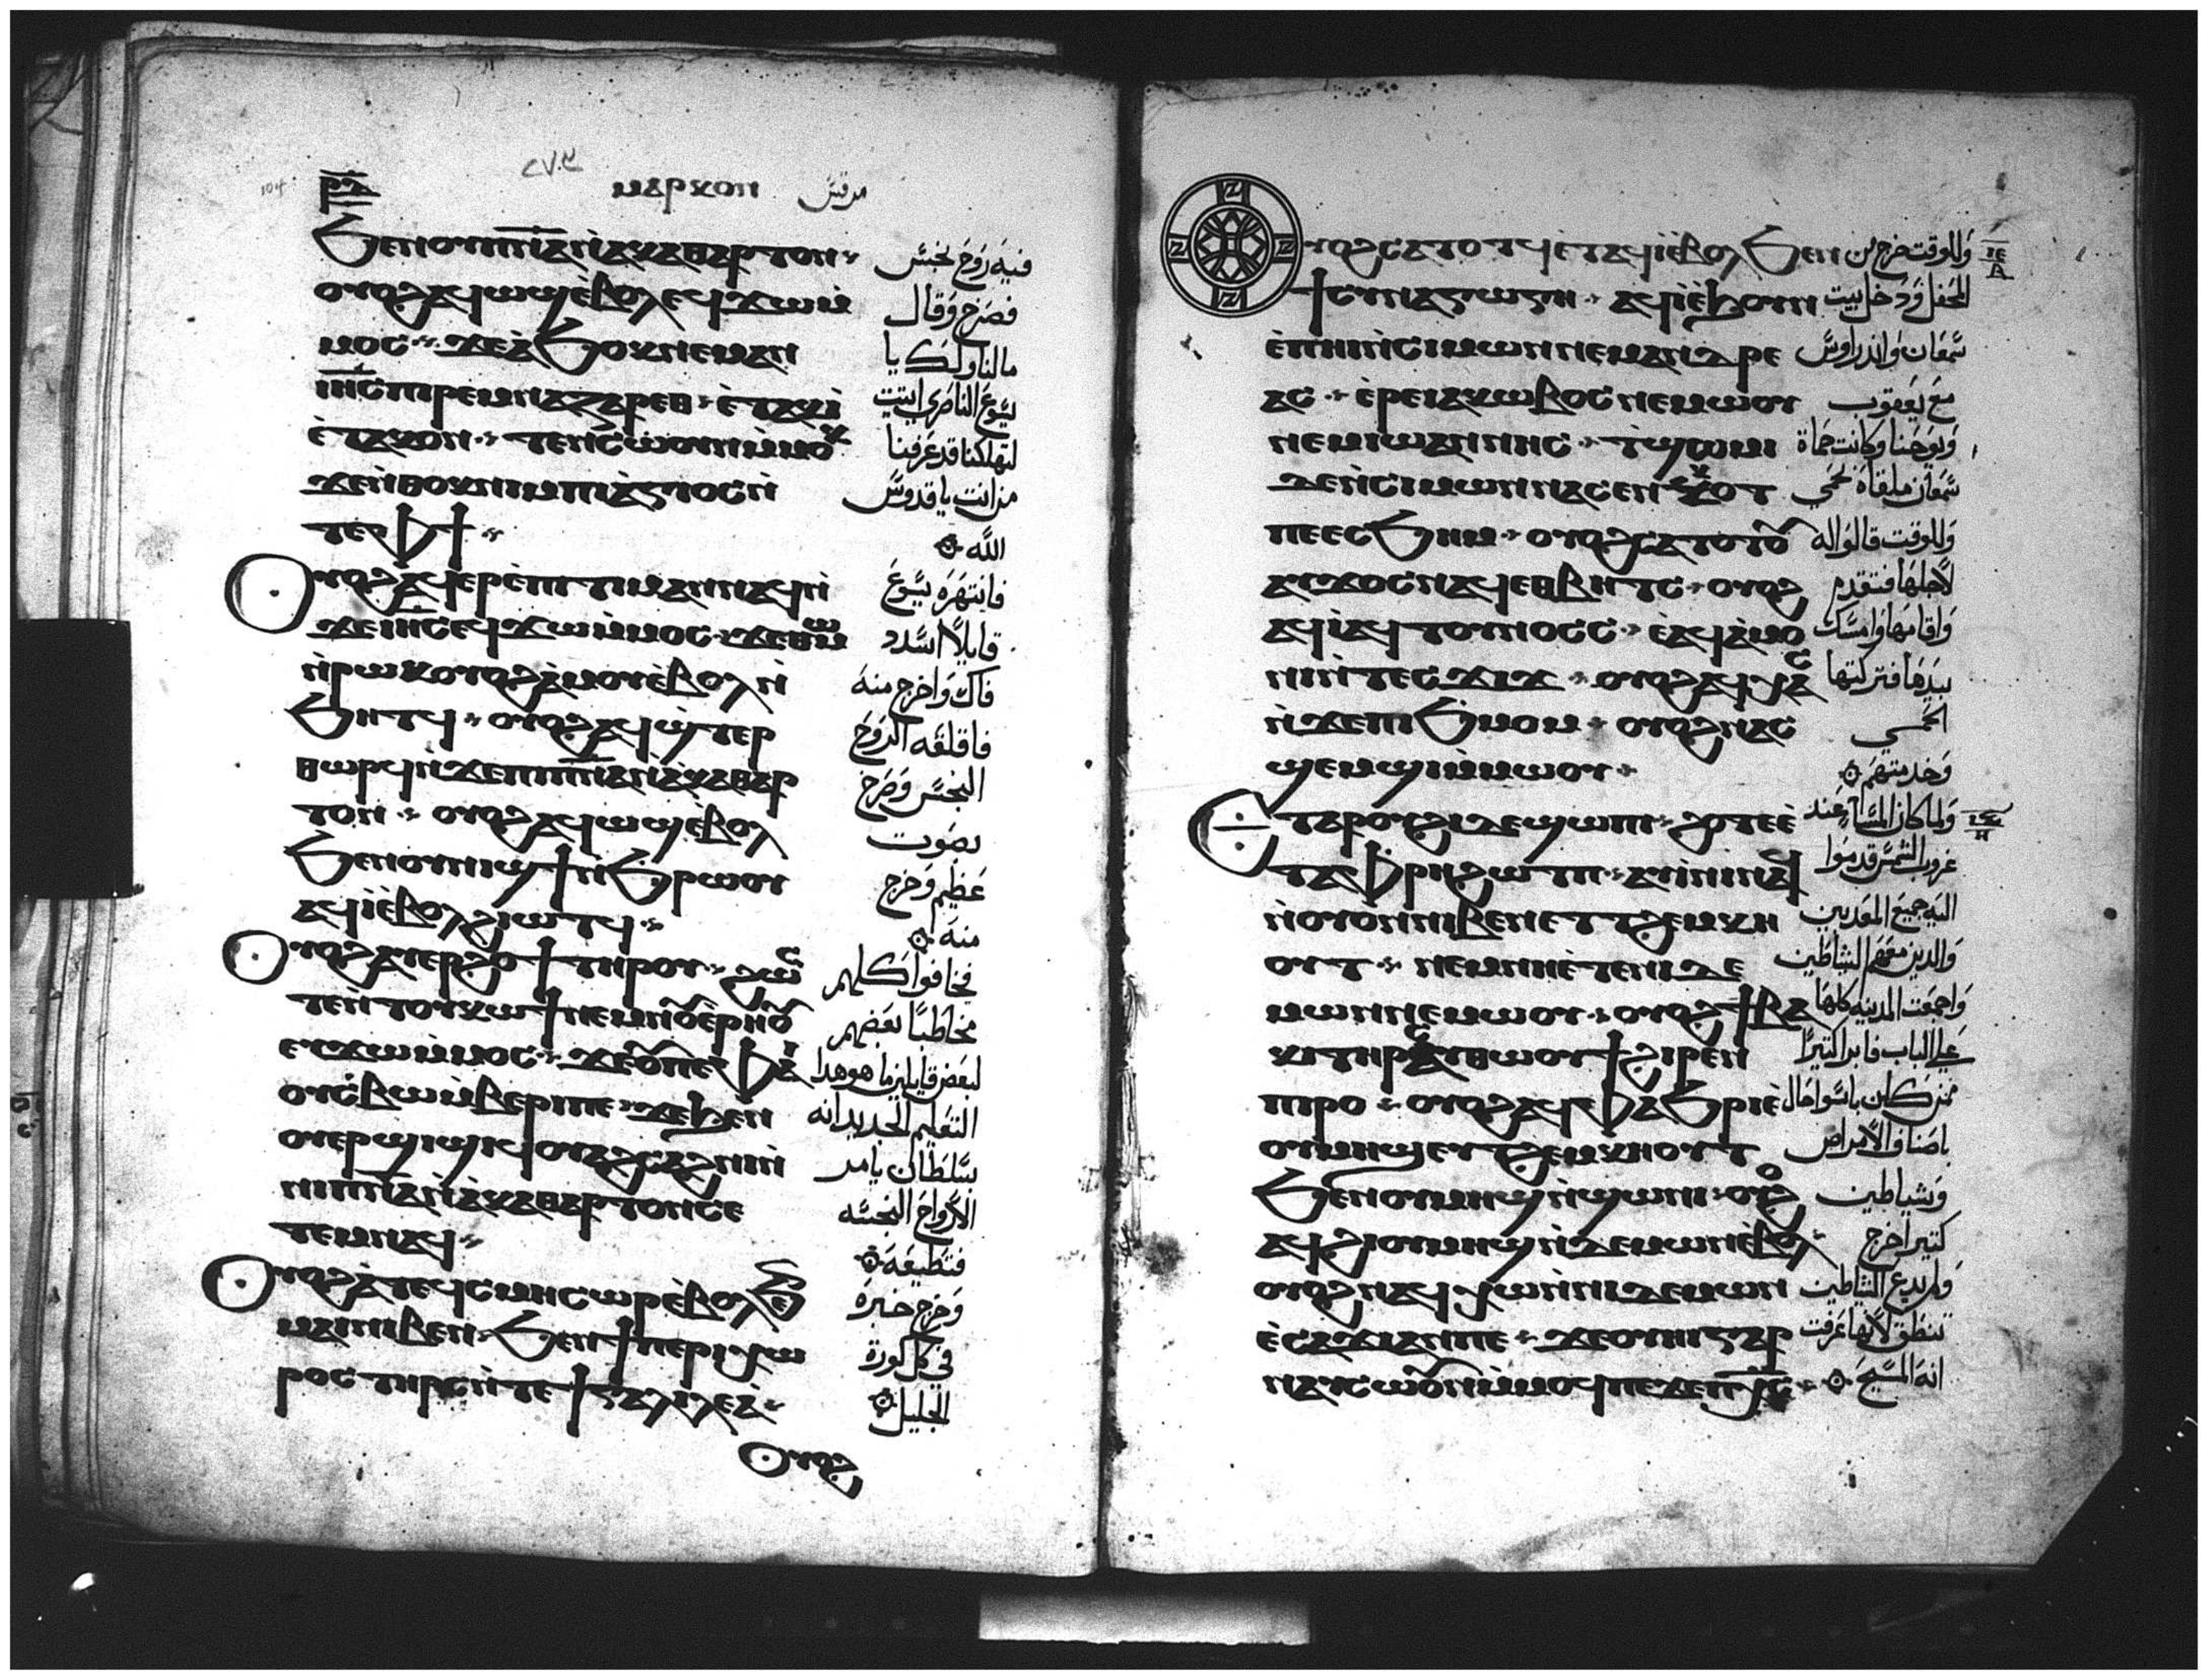 ⲣⲇ
ⲙⲁⲣⲕⲟⲛ مرقس
ϧⲉⲛⲟⲩⲡⲛⲁ̅ⲛ̀ⲁⲕⲁⲑⲁⲣⲧⲟⲛ
ⲟⲩⲟϩⲁϥⲱϣⲉ̀ⲃⲟⲗⲉϥϫⲱⲙ̀
ⲙⲟⲥ ϫⲉⲁ̀ϧⲟⲕⲛⲉⲙⲁⲛ
ⲓⲏ̅ⲥ̅ⲡⲓⲣⲉⲙⲛⲁⲍⲁⲣⲉⲑ ⲉ̀ⲧⲁⲕⲓ̀
ⲉ̀ⲧⲁⲕⲟⲛ ⲧⲉⲛⲥⲱⲟⲩⲛⲙ̀ⲙⲟⲕ
ϫⲉⲛ̀ⲑⲟⲕⲛⲓⲙⲡⲓⲁ̀ⲅⲓⲟⲥⲛ̀
ⲧⲉⲫϯ
ⲟⲩⲟϩⲁϥⲉⲣⲉ̀ⲡⲓⲧⲓⲙⲁⲛⲛⲁϥⲛ̀
ϫⲉⲓⲏ̅ⲥ̅ⲉϥϫⲱⲙ̀ⲙⲟⲥ ϫⲉⲑⲱⲙ
ⲛ̀ⲣⲱⲕⲟⲩⲟϩⲁ̀ⲙⲟⲩⲉ̀ⲃⲟⲗⲛ̀
ϧⲏⲧϥ ⲟⲩⲟϩⲁϥϣ̀ⲧⲉⲣ
ⲑⲱⲣϥⲛ̀ϫⲉⲡⲓⲡⲛⲁ̅ⲛ̀ⲁ̀ⲕⲁⲑⲁⲣ
ⲧⲟⲛ ⲟⲩⲟϩⲁϥⲱϣⲉ̀ⲃⲟⲗ
ϧⲉⲛⲟⲩⲛⲓϣϯⲛ̀ϧⲣⲱⲟⲩ
ⲁϥⲓ̀ⲉ̀ⲃⲟⲗϩⲓⲱⲧϥ
ⲟⲩⲟϩⲁⲩⲉⲣϩⲟϯⲧⲏⲣⲟⲩ ϩⲱⲥ
ⲧⲉⲛ̀ⲧⲟⲩⲕⲱϯⲛⲉⲙⲛⲟⲩⲉ̀ⲣⲏⲟⲩ
ⲉⲩϫⲱⲙ̀ⲙⲟⲥ ϫⲉⲟⲩⲡⲉⲫⲁⲓ
ⲟⲩⲥ̀ⲃⲱⲙ̀ⲃⲉⲣⲓⲡⲉ ϫⲉϧⲉⲛ
ⲟⲩⲉⲣϣⲓϣⲓϥⲟⲩⲁϩⲥⲁϩⲛⲓⲛ̀
ⲛⲓⲡⲛⲁ̅ⲛ̀ⲁ̀ⲕⲁⲑⲁⲣⲧⲟⲛⲥⲉ
ⲥⲱⲧⲉⲙⲛⲁϥ
ⲟⲩⲟϩⲁ̀ⲧⲉϥⲥⲙⲏⲥⲱⲣⲉ̀ⲃⲟⲗϧⲉⲛ
ⲙⲁⲓⲛⲓⲃⲉⲛ ϧⲉⲛϯⲡⲉⲣⲓⲭⲱ
ⲣⲟⲥⲧⲏⲣⲥⲛ̀ⲧⲉϯⲅⲁⲗⲓⲗⲉⲁ̀
ⲟⲩⲟϩ
فيه روح نجس
فصرخ وقال
مالنا ولك يا
يسوع الناصري اتيت
لتهلكنا قد عرفنا
من انت يا قدوس
الله
فانتهره يسوع
قايلا اسدد
فاك واخرج منه
فاقلقه الروح
النجس وصرخ
بصوت
عظيم وخرج
منه
فخافوا كلهم
مخاطبا بعضهم
لبعض قايلين ما هو هدا
التعليم الجديد انه
بسلطان يامر
الارواح النجسه
فتطيعه
وخرج خبره
في كل كورة
الجليل
ⲟⲩⲟϩⲥⲁⲧⲟⲧϥⲉ̀ⲧⲁϥⲓ̀ⲉ̀ⲃⲟⲗϧⲉⲛ
ϯⲥⲩⲛⲁⲅⲱⲅⲏ ⲁϥⲓ̀ⲉ̀ϧⲟⲩⲛ
ⲉ̀ⲡⲏⲓⲛ̀ⲥⲓⲙⲱⲛⲛⲉⲙⲁⲛⲇⲣⲉ
ⲁⲥ ⲉ̀ⲣⲉⲓⲁⲕⲱⲃⲟⲥⲛⲉⲙⲱⲟⲩ
ⲛⲉⲙⲓⲱⲁⲛⲛⲏⲥ ⲧ̀ϣⲱⲙⲓ
ϫⲉⲛ̀ⲥⲓⲙⲱⲛⲛⲁⲥⲉⲛⲕⲟⲧ
ⲡⲉⲉⲥϧⲏⲙ ⲟⲩⲟϩⲥⲁⲧⲟⲧⲟⲩ
ⲁⲩϫⲟⲥⲛⲁϥⲉⲑⲃⲏⲧⲥ ⲟⲩⲟϩ
ⲁϥⲓ̀ⲁϥⲧⲟⲩⲛⲟⲥⲥ ⲉ̀ⲁϥⲁ̀ⲙⲟ
ⲛⲓⲛ̀ⲧⲉⲥϫⲓϫ ⲟⲩⲟϩⲁϥⲭⲁⲥ
ⲛ̀ϫⲉⲡⲓϧⲙⲟⲙ ⲟⲩⲟϩⲛⲁⲥ
ϣⲉⲙϣⲓⲙ̀ⲙⲱⲟⲩ
ⲉⲧⲁⲣⲟⲩϩⲓⲇⲉϣⲱⲡⲓ ϩⲟⲧⲉⲉ̀
ⲧⲁⲫⲣⲏϩⲱⲧⲡ ⲁⲩⲓ̀ⲛⲓⲛⲁϥ
ⲛ̀ⲟⲩⲟⲛⲛⲓⲃⲉⲛⲉⲧⲧϩⲉⲙⲕⲏ
ⲟⲩⲧ ⲛⲉⲙⲛⲏⲉ̀ⲧⲉⲛⲓⲇⲉ
ⲙⲱⲛⲛⲉⲙⲱⲟⲩ ⲟⲩⲟϩϯⲃⲁ
ⲕⲓⲧⲏⲣⲥⲁⲥⲑⲱⲟⲩϯϩⲓⲣⲉⲛ
ⲡⲓⲣⲟ ⲟⲩⲟϩⲁϥⲉⲣⲫⲁϧⲣⲓⲉ̀
ⲟⲩⲙⲏϣⲉⲩⲧϩⲉⲙⲕⲏⲟⲩⲧ
ϧⲉⲛⲟⲩⲙⲏϣⲛ̀ϣⲱⲛⲓ ⲟⲩⲟϩ
ⲁϥϩⲓⲟⲩⲙⲏϣⲛ̀ⲇⲉⲙⲱⲛⲉ̀ⲃⲟⲗ
ⲟⲩⲟϩⲛⲁϥⲭⲱⲛ̀ⲛⲓⲇⲉⲙⲱⲛ
ⲉ̀ⲥⲁϫⲓⲁⲛⲡⲉ ϫⲉⲟⲩⲏⲓⲅⲁⲣ
ⲛⲁⲩⲥⲱⲟⲩⲛⲙ̀ⲙⲟϥⲡⲉϫⲉⲡⲭ̅ⲥ̅
وللوقت خرج من
المحفل ودخل بيت
سمعان واندراوس
مع يعقوب
ويوحنا وكانت حماة
سمعان ملقاة بحمي
وللوقت قالوا له
لاجلها فتقدم
واقامها وامسك
بيدها فتركتها
الحمي
وخدمتهم
ولما كان المساء عند
غروب الشمس قدموا
اليه جميع المعدبين
والدين معهم الشياطين
واجمعت المدينه كلها
علي الباب فابرا كتيرا
ممن كان باسوا حال
باصناف الامراض
وشياطين
كتير اخرج
ولم يدع الشياطين
تنطق لانها عرفت
انه المسيح